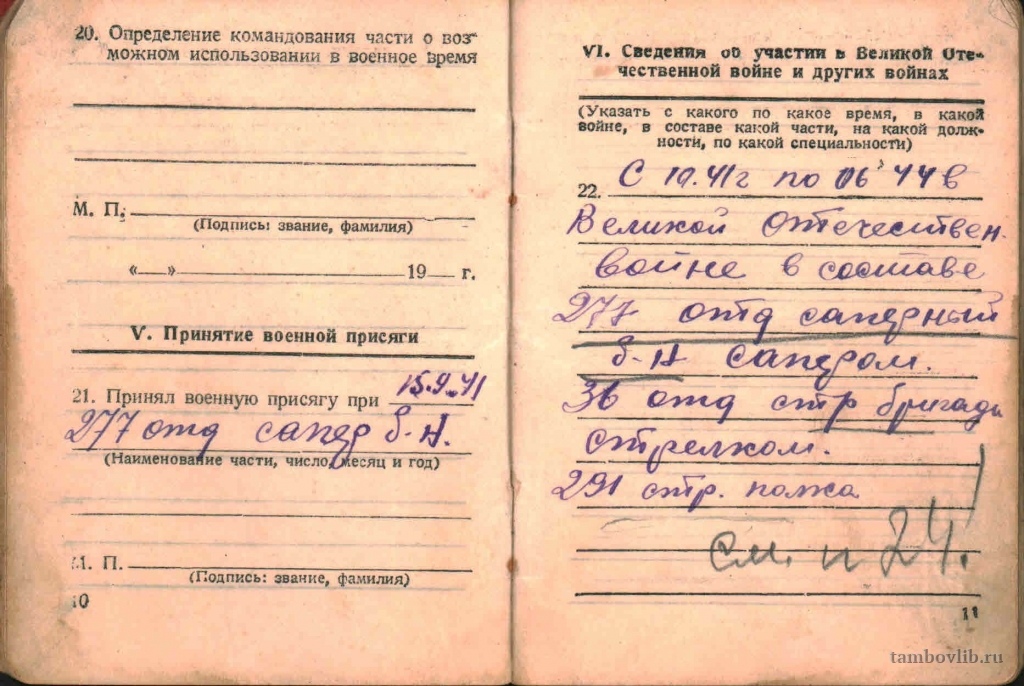 20. Определение командования части о воз-
можном использовании в военное время
М. П.
(Подпись: звание, фамилия)
«   » 19   г.
V. Принятие военной присяги
21. Принял военную присягу при 15.9.41
277 отд сапер б-н.
(Наименование части, число, месяц и год)
М. П.
(Подпись: звание, фамилия)
10
VI. Сведения об участии в Великой Оте-
чественной войне и других войнах
(Указать с какого по какое время, в какой
войне, в составе какой части, на какой долж-
ности, по какой специальности)
22. С 10.41г по 06 44 в
Великой отечествен.
войне в составе
277 отд саперный
б-н сапером.
36 отд стр бригады
стрелком.
291 стр. полка
см. п 24!
11
tambovlib.ru